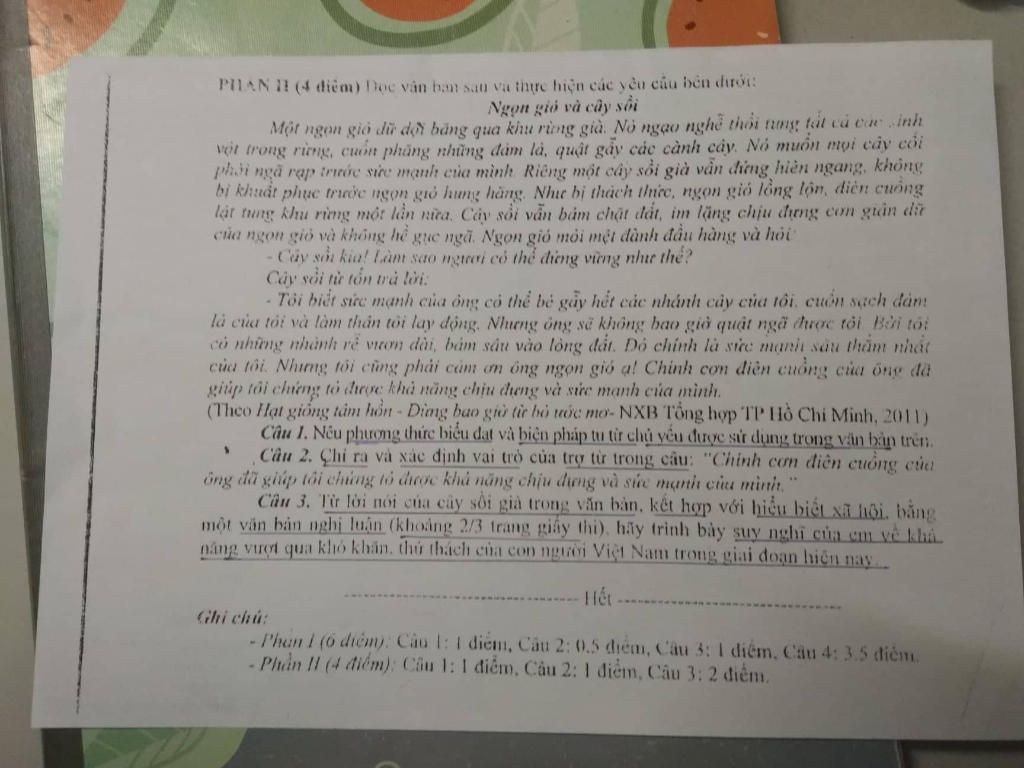 PHẦN II (4 điểm) Đọc văn bản sau và thực hiện các yêu cầu bên dưới:
Ngọn gió và cây sồi
Một ngọn gió dữ dội băng qua khu rừng già. Nó ngạo nghễ thổi tung tất cả các sinh
vật trong rừng, cuốn phăng những đám lá, quật gẫy các cành cây. Nó muốn mọi cây cối
phải ngã rạp trước sức mạnh của mình. Riêng một cây sồi già vẫn đứng hiên ngang, không
bị khuất phục trước ngọn gió hung hăng. Như bị thách thức, ngọn gió lồng lộn, điên cuồng
lật tung khu rừng một lần nữa. Cây sồi vẫn bám chặt đất, im lặng chịu đựng cơn giận dữ
của ngọn gió và không hề gục ngã. Ngọn gió mỏi mệt đành đầu hàng và hỏi:
- Cây sồi kia! Làm sao ngươi có thể đứng vững như thế?
Cây sồi từ tốn trả lời:
- Tôi biết sức mạnh của ông có thể bẻ gẫy hết các nhánh cây của tôi, cuốn sạch đám
lá của tôi và làm thân tôi lay động. Nhưng ông sẽ không bao giờ quật ngã được tôi. Bởi tôi
có những nhánh rễ vươn dài, bám sâu vào lòng đất. Đó chính là sức mạnh sâu thẳm nhất
của tôi. Nhưng tôi cũng phải cảm ơn ông ngọn gió ạ! Chính cơn điên cuồng của ông đã
giúp tôi chứng tỏ được khả năng chịu đựng và sức mạnh của mình.
(Theo Hạt giống tâm hồn - Đừng bao giờ từ bỏ ước mơ- NXB Tổng hợp TP Hồ Chí Minh, 2011)
Câu 1. Nêu phương thức biểu đạt và biện pháp tu từ chủ yếu được sử dụng trong văn bản trên.
Câu 2. Chỉ ra và xác định vai trò của trợ từ trong câu: "Chính cơn điên cuồng của
ông đã giúp tôi chứng tỏ được khả năng chịu đựng và sức mạnh của mình."
Câu 3. Từ lời nói của cây sồi già trong văn bản, kết hợp với hiểu biết xã hội, bằng
một văn bản nghị luận (khoảng 2/3 trang giấy thi), hãy trình bày suy nghĩ của em về khả
năng vượt qua khó khăn, thử thách của con người Việt Nam trong giai đoạn hiện nay.
Hết
Ghi chú:
- Phần I (6 điểm): Câu 1: 1 điểm, Câu 2: 0.5 điểm, Câu 3: 1 điểm, Câu 4: 3.5 điểm.
- Phần II (4 điểm): Câu 1: 1 điểm, Câu 2: 1 điểm, Câu 3: 2 điểm.